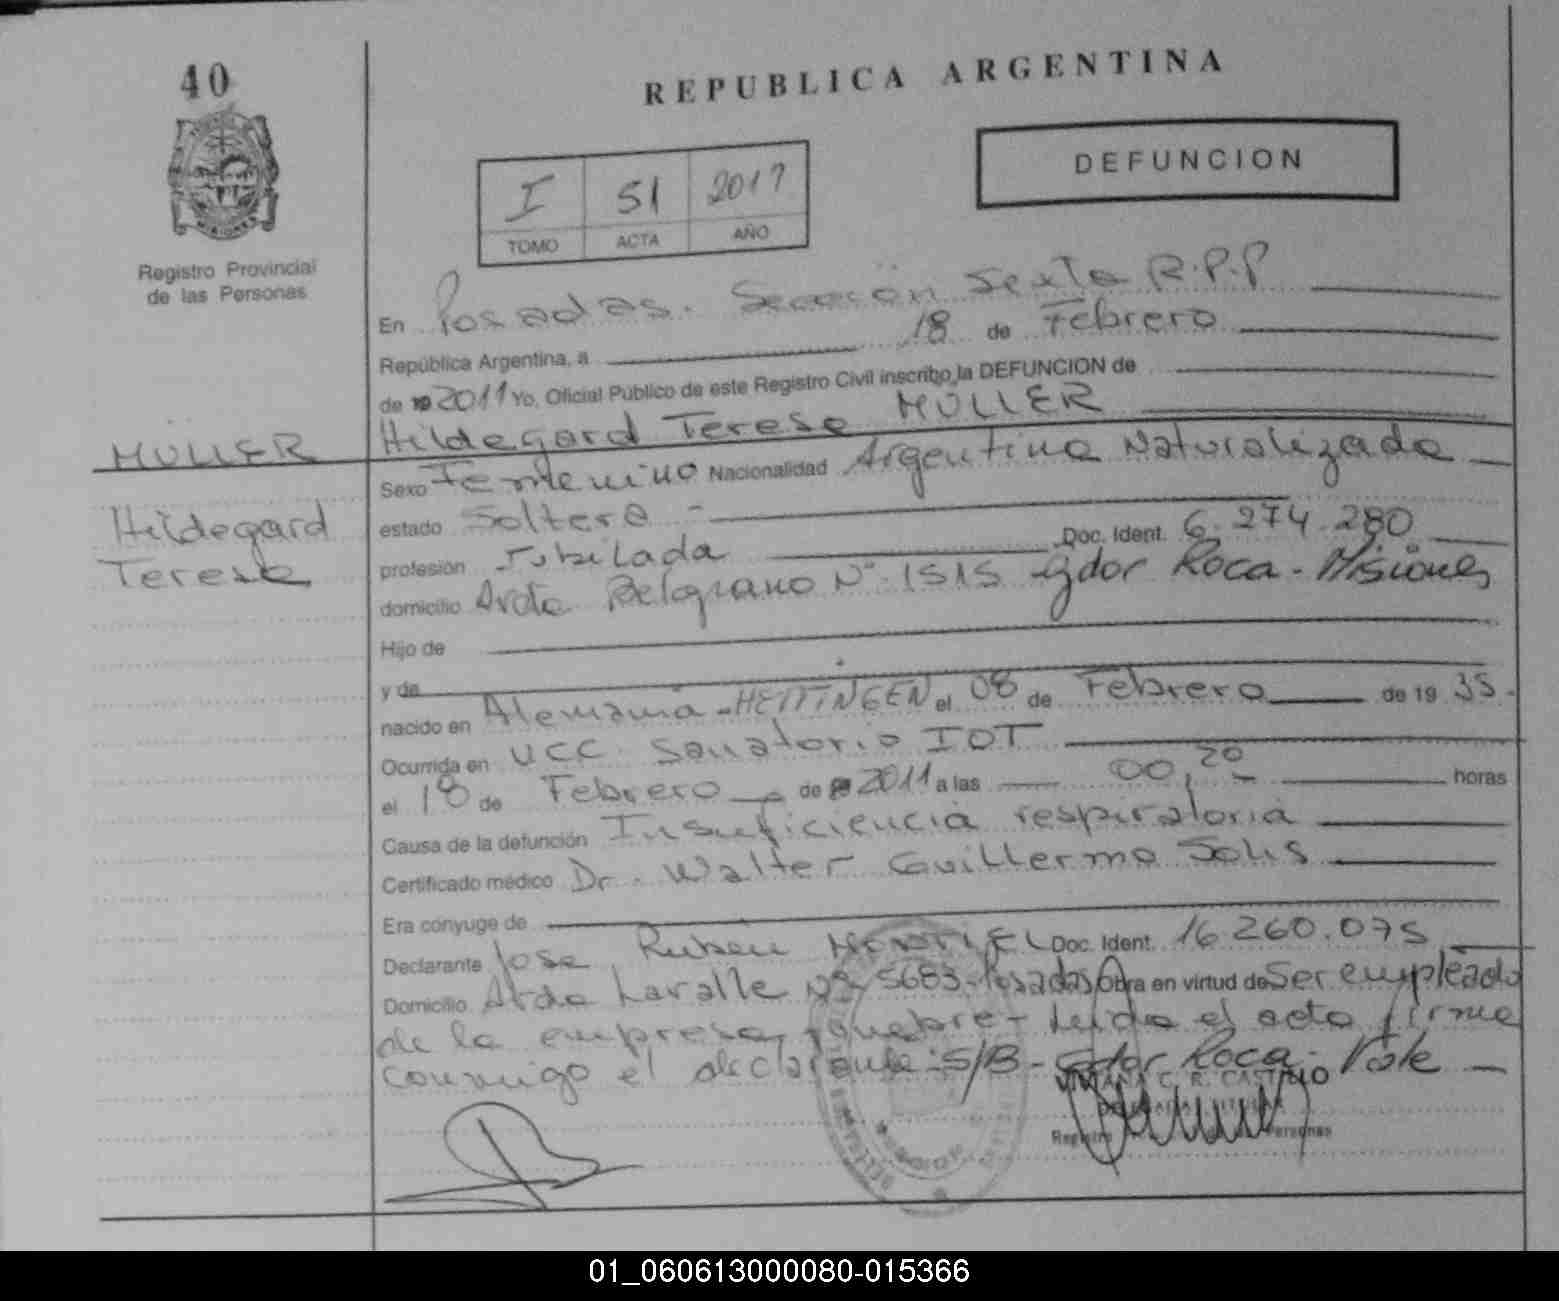 40
REPUBLICA ARGENTINA
DEFUNCION
I 51 2011
TOMO ACTA AÑO
Registro Provincial
de las Personas
En Posadas. Sección Sexta R.P.P
República Argentina, a 18 de Febrero
de 19 2011 Yo, Oficial Público de este Registro Civil inscribo la DEFUNCION de
MÜLLER
Hildegard
Terese
Hildegard Terese MÜLLER
Sexo Femenino Nacionalidad Argentina Naturalizada
estado Soltera
profesión Jubilada Doc. Ident. 6.274.280
domicilio Avda Belgrano Nº 1515 Gdor Roca - Misiones
Hijo de
y de
nacido en Alemania - HETTINGEN el 08 de Febrero de 19 35.
Ocurrida en UCC Sanatorio IOT
el 18 de Febrero de 19 2011 a las 00,20 horas
Causa de la defunción Insuficiencia respiratoria
Certificado médico Dr. Walter Guillermo Solis
Era cónyuge de
Declarante Jose Ruben Doc. Ident. 16.260.075
Domicilio Avda Lavalle Nº 5683 - Posadas Obra en virtud de Ser empleado
de la empresa funebre - Leido el acta firma
conmigo el declarante - S/B - Gdor Roca - Vale
VIVIANA C. R. CASTILLO
DELEGADA TITULAR
Registro Personas
01_060613000080-015366